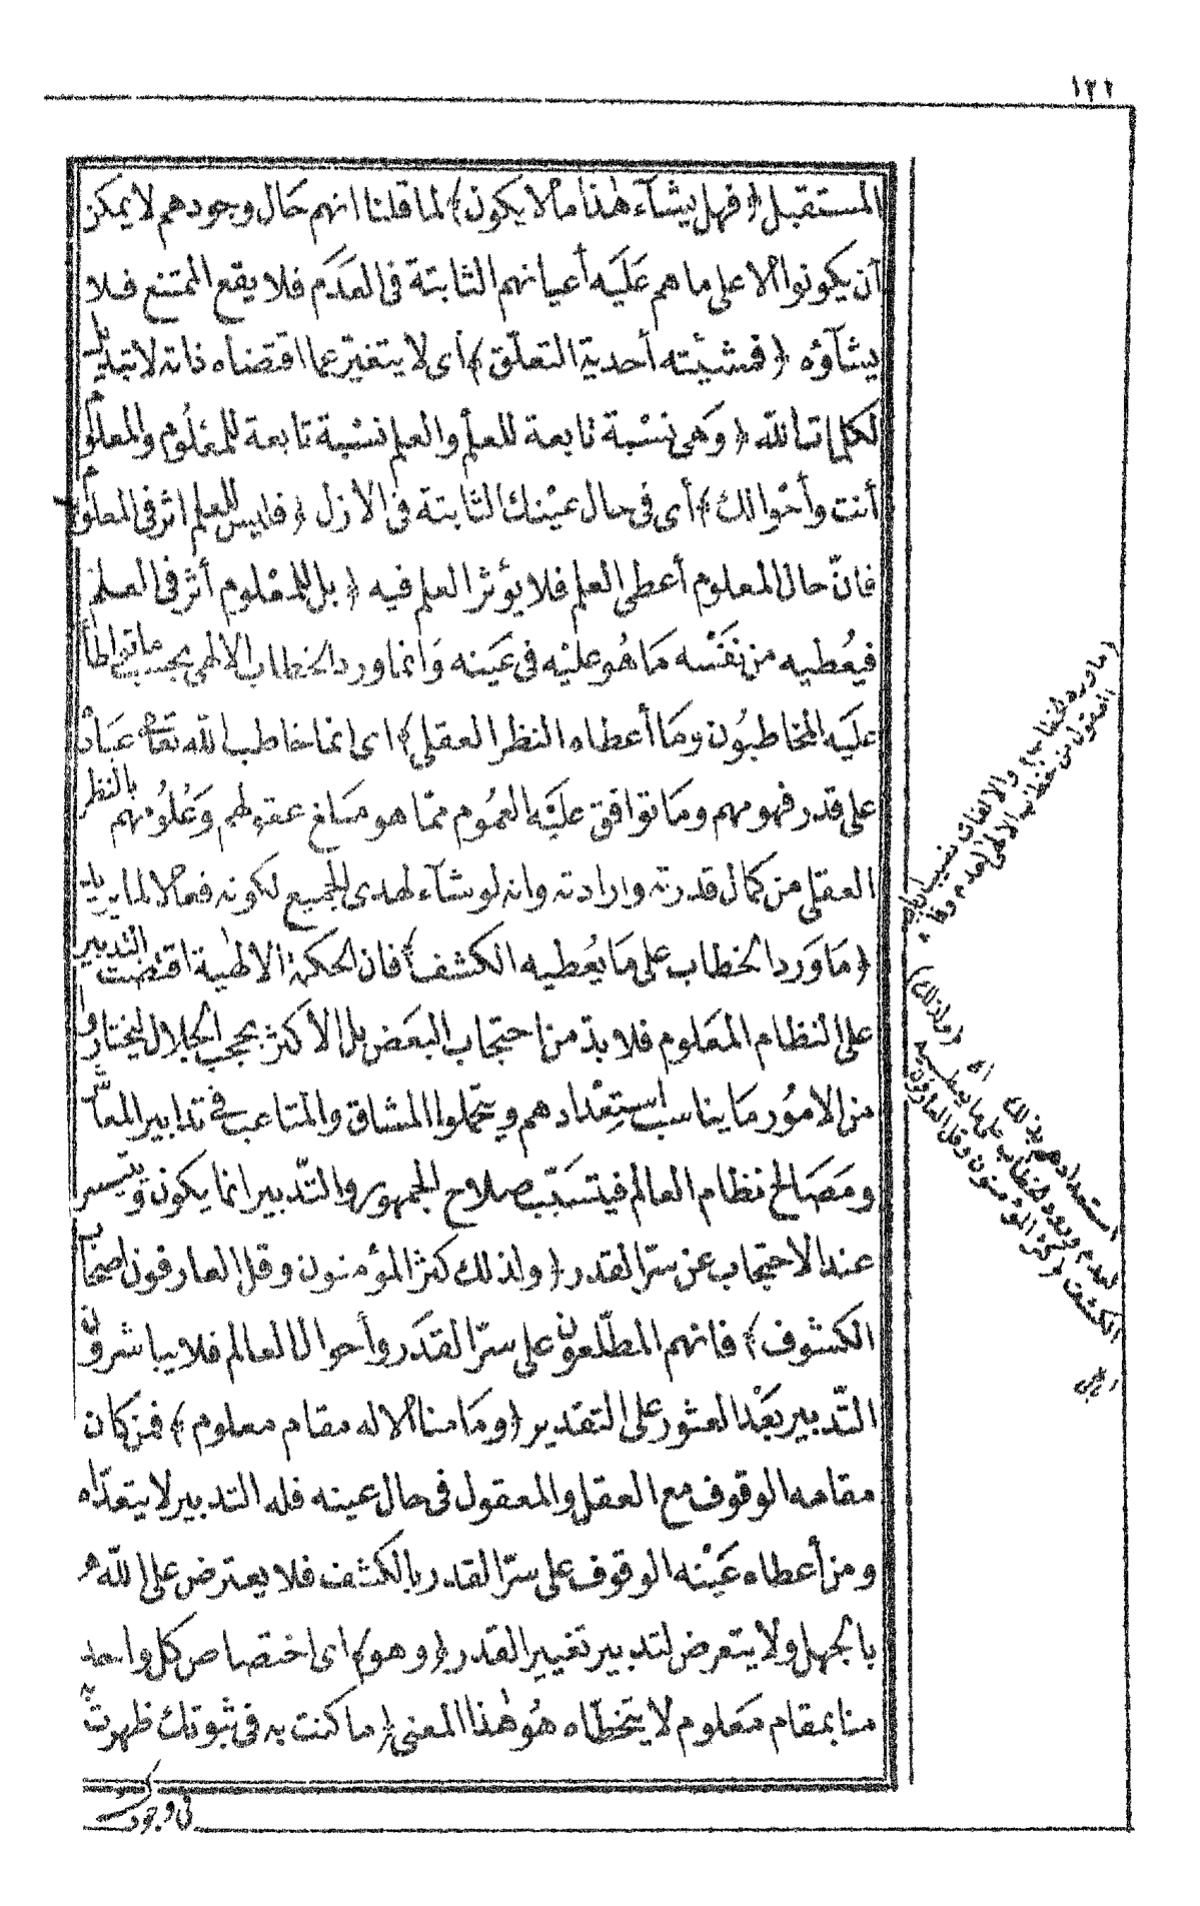 ١٢٢
المستقبل ﴿فهل يشآء هٰذا ما لا يكون﴾ لما قلنا انهم حَال وجودهم لا يمكن
أن يكونوا الا على ما هم عَلَيه أعيانهم الثابتة فى العَدَم فلا يقع الممتنع فلا
يشآؤه ﴿فمشيّته أحدية التعلّق﴾ أى لا يتغيّر عما اقتضاه ذاته لا تبديل
لكلمات الله ﴿وَهى نسْبة تابعة للعلم والعلم نسْبة تابعة للمعْلُوم والمعلوم
أنت وأحْوالك﴾ أى فى حال عيْنك الثابتة فى الازل ﴿فليس للعلم اثر فى المعلوم
فانّ حال المعلوم أعطى العلم فلا يؤثر العلم فيه ﴿بل للمعْلوم أثر فى العلم
فيعُطيه من نَفْسه مَا هُو عليْه فى عَينه وَانما ورد الخطاب الالهى بحسب ما تواطأ
علَيه المخاطبُون ومَا أعطاه النظر العقلى﴾ اى انما خاطب الله تعالى عبَاده
على قدر فهومهم ومَا توافق عليَه العمُوم ممّا هو مبَلغ عقولهم وَعُلُومهم بالنظر
العقلى من كمال قدرته وارادته وانه لو شآء لهدى الجميع لكونه فعالا لما يريد
﴿مَا وَرد الخطاب على مَا يعُطيه الكشف﴾ فان الحكمة الالٰهية اقتضت التدبير
على النظام المعَلوم فلا بدّ من احتجاب البعَض بل الأكثر بحجب الجلال ليختاروا
من الامُور مَا يناسب استِعْدادهم ويتحملوا المشاق والمتاعب فى تدابير المعاش
ومَصَالح نظام العالم فيتسَبّب صلاح الجمهور والتّدبير انما يكون ويتيسر
عند الاحتجاب عن سرّ القدر ﴿ولذلك كثر المؤمنون وقل العارفون اصحاب
الكشوف﴾ فانهم المطّلعون على سرّ القدَر وأحوال العالم فلا يباشرون
التّدبير بَعْد العثور على التقدير ﴿ومَا منا الا له مقام معلوم﴾ فمن كان
مقامه الوقوف مع العقل والمعقول فى حال عينه فله التدبير لا يتعدّاه
ومن أعطاه عَيْنه الوقوف على سرّ القدر بالكشف فلا يعترض على الله
بالجهل ولا يتعرض لتدبير تغيير القدر ﴿وهو﴾ اى اختصاص كل واحد
منا بمقام مَعلوم لا يتخطّاه هُو هٰذا المعنى ﴿ما كنت به فى ثبوتك ظهرت به
فى وجودك
(ما ورد الخطاب)
(ولذلك)
استعدادهم بذلك
الكشف (كثر المؤمنون وقل العارفون